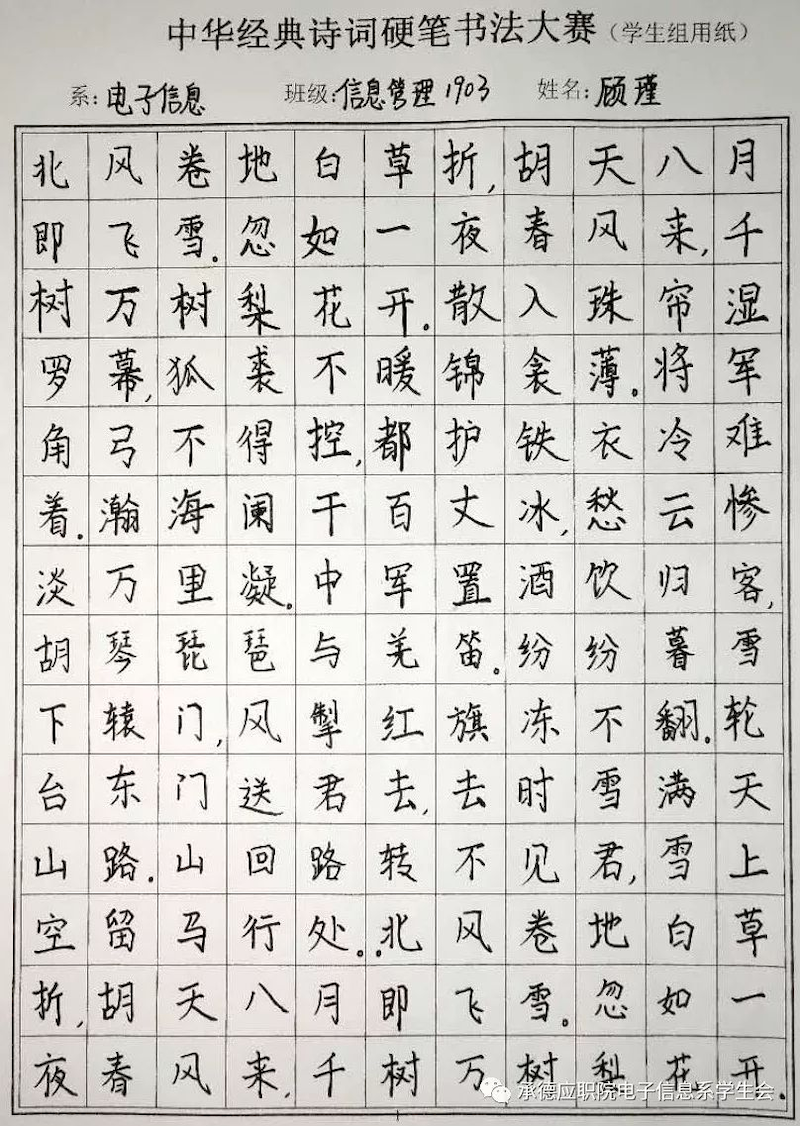 中华经典诗词硬笔书法大赛（学生组用纸）
系:电子信息 班级:信息管理1903 姓名:顾瑾
北风卷地白草折,胡天八月
即飞雪。忽如一夜春风来,千
树万树梨花开。散入珠帘湿
罗幕,狐裘不暖锦衾薄。将军
角弓不得控,都护铁衣冷难
着。瀚海阑干百丈冰,愁云惨
淡万里凝。中军置酒饮归客,
胡琴琵琶与羌笛。纷纷暮雪
下辕门,风掣红旗冻不翻。轮
台东门送君去,去时雪满天
山路。山回路转不见君,雪上
空留马行处。北风卷地白草
折,胡天八月即飞雪。忽如一
夜春风来,千树万树梨花开。
承德应职院电子信息系学生会